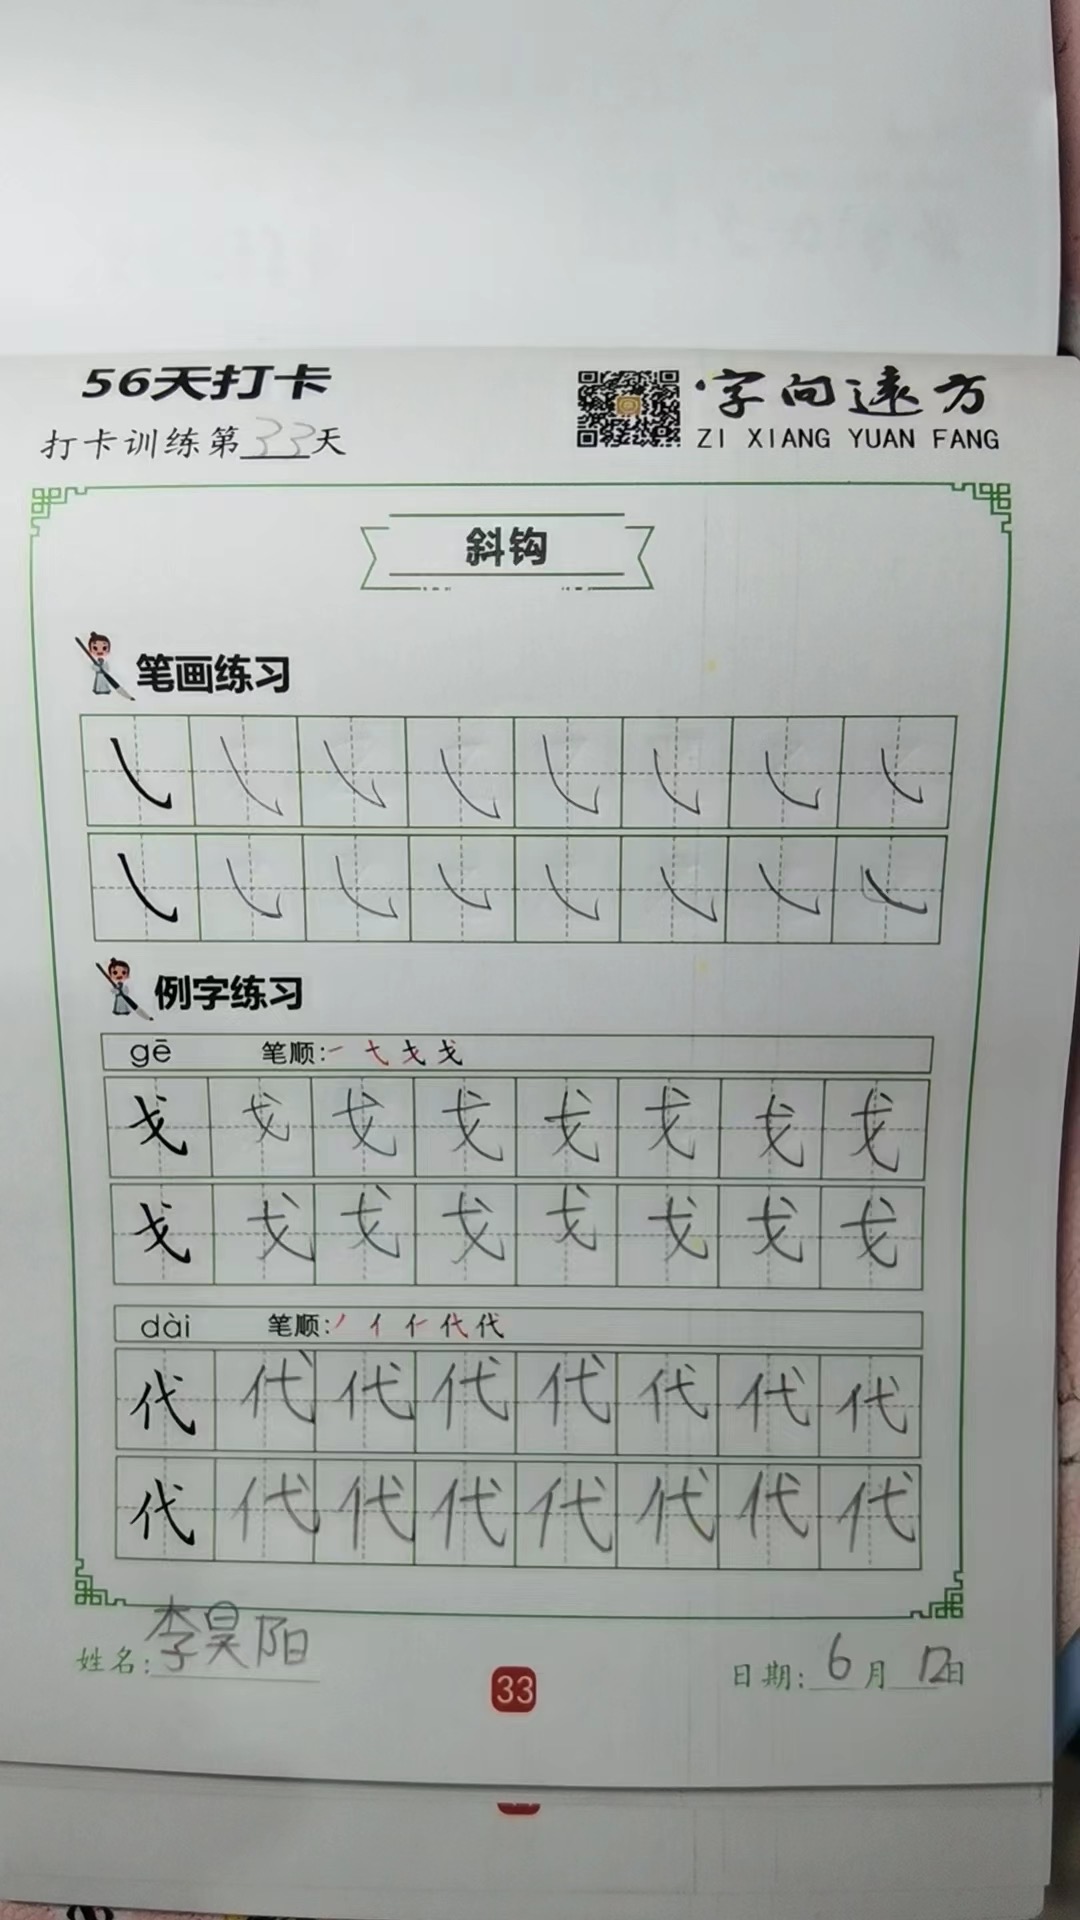 56天打卡
打卡训练第33天
字向远方
ZI XIANG YUAN FANG
斜钩
笔画练习
㇂ ㇂ ㇂ ㇂ ㇂ ㇂ ㇂ ㇂
㇂ ㇂ ㇂ ㇂ ㇂ ㇂ ㇂ ㇂
例字练习
gē 笔顺:一 弋 戈 戈
戈 戈 戈 戈 戈 戈 戈 戈
戈 戈 戈 戈 戈 戈 戈 戈
dài 笔顺:丿 亻 仁 代 代
代 代 代 代 代 代 代 代
代 代 代 代 代 代 代 代
姓名:李昊阳
33
日期:6月12日